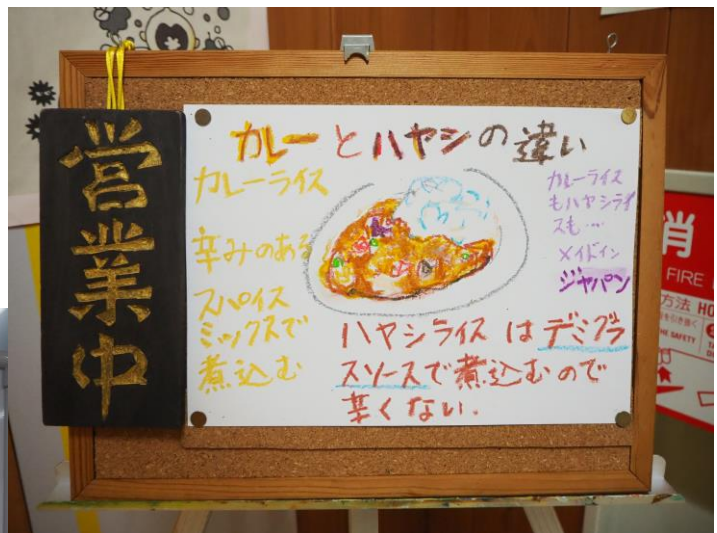 営業中
カレーとハヤシの違い
カレーライス
辛みのある
スパイス
ミックスで
煮込む
カレーライス
もハヤシライ
スも…
メイドイン
ジャパン
ハヤシライスはデミグラ
スソースで煮込むので
辛くない.
消
FIRE
方法 HO
THE SAFETY